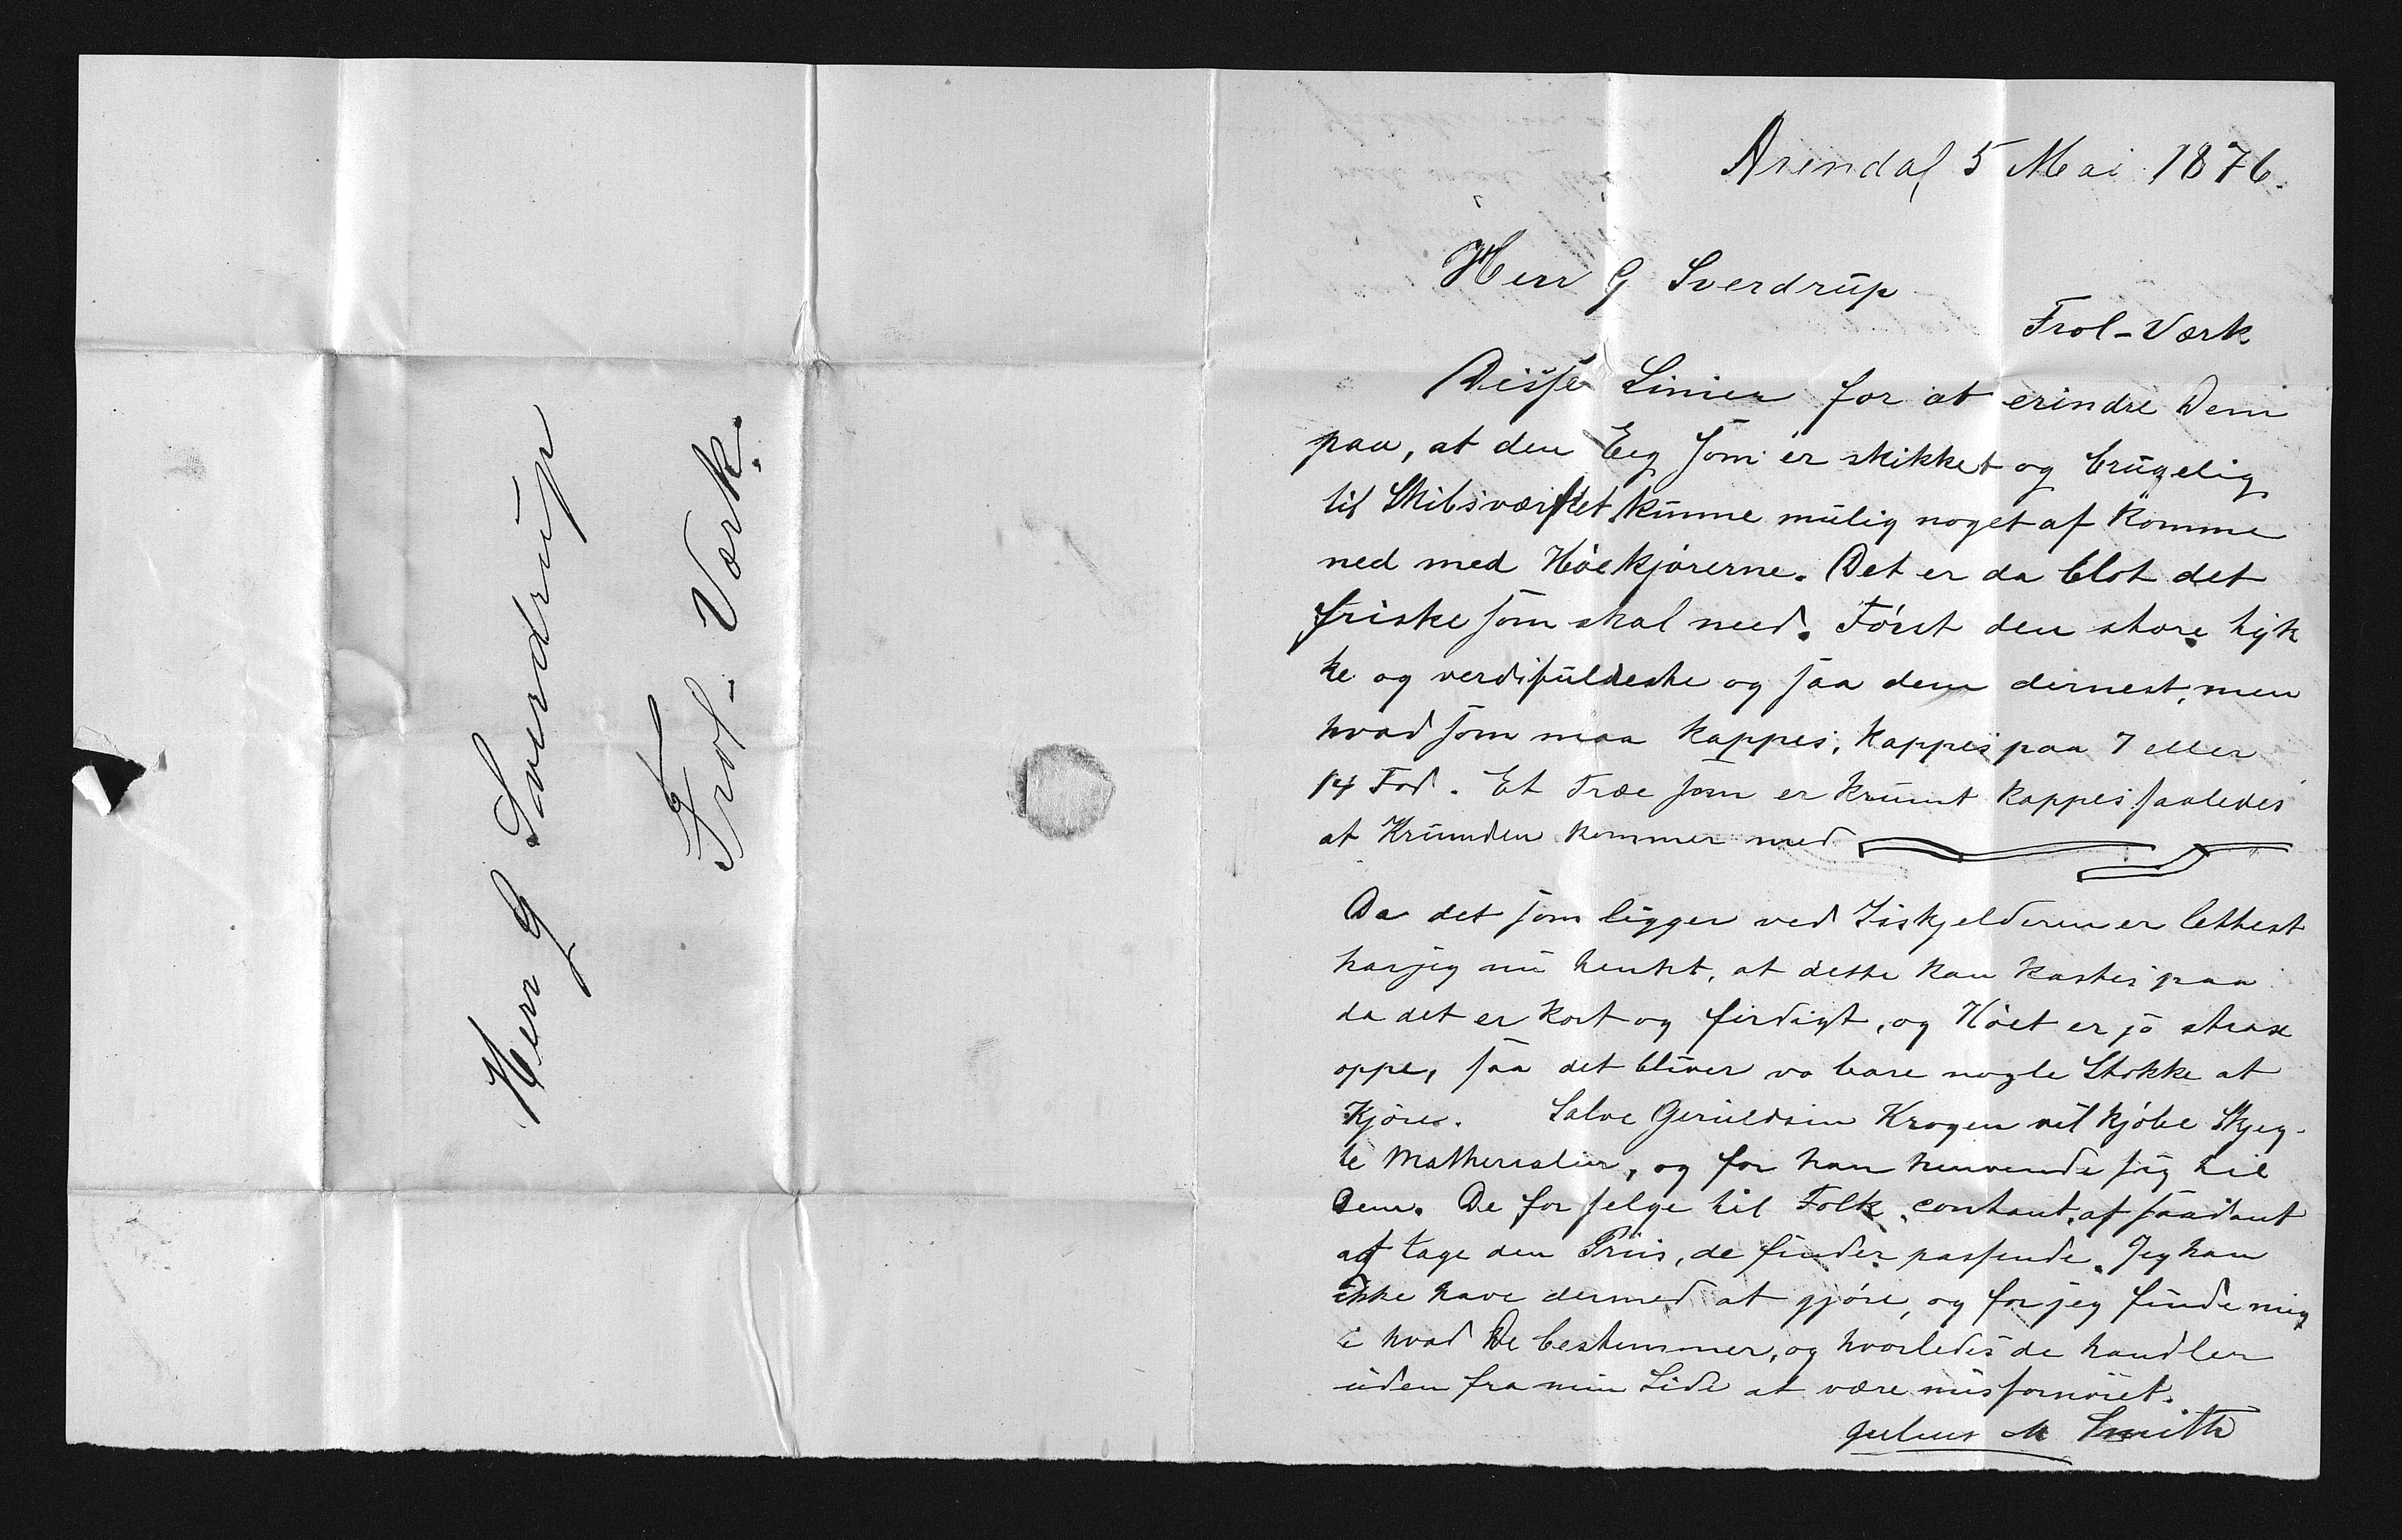 Herr G Sverdrup
Frol-Værk.
Arendal 5 Mai 1876.
Herr G Sverdrup
Frol-Værk
Disse Linier for at erindre Dem
paa, at den Eeg som er skikket og brugelig
til Skibsværftet kunne mulig noget af komme
ned med Höekjørerne. Det er da blot det
friske som skal ned. Først den store tyk
ke og verdifuldeste og saa dem dernest, men
hvad som maa kappes, kappes paa 7 eller
14 Fod. Et Træ som er krumt kappes saaledes
at Krumden kommer med
Da det som ligger ved Iiskjelderen er lettest
har jeg nu tenkt, at dette kan kastes paa
da det er kort og ferdigt, og Höet er jo strax
oppe, saa det bliver vo bare nogle Stokke at
kjøre. Salve Krogen vil kjøbe Skjeg-
te Matherialier, og for han henvende sig til
Dem. De for selge til Folk, contant, af saadant
at tage den Priis, de finder passende. Jeg kan
ikke have dermed at gjøre, og for jeg finde mig
i hvad De bestemmer, og hvorledes de handler
uden fra min Side at være misfornöiet.
Julius M Smith